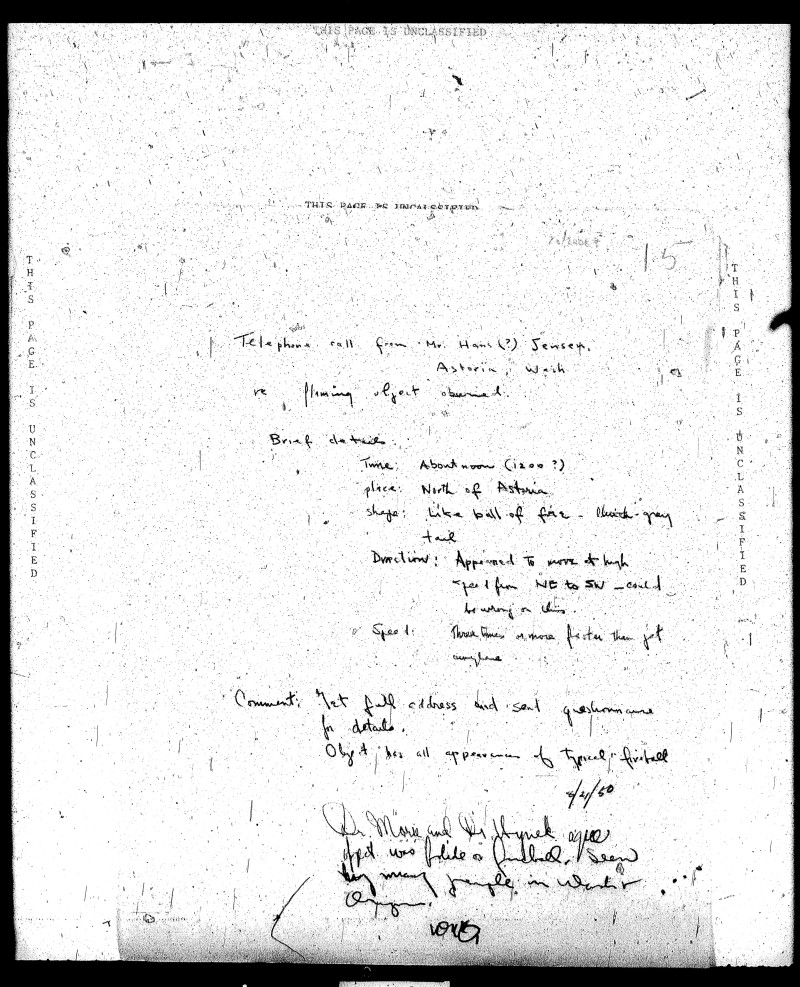 THIS PAGE IS UNCLASSIFIED
THIS PAGE IS UNCALSSIFIED
15
THIS PAGE IS UNCLASSIFIED
THIS PAGE IS UNCLASSIFIED
Telephone call from Mr. Hans (?) Jensen,
Astoria, Wash
re flaming object observed.
Brief details
Time: About noon (1200 ?)
place: North of Astoria
shape: Like ball of fire - -gray
tail
Direction: Appeared to move at high
speed from NE to SW - could
be wrong on this.
Speed: Three times or more faster than jet
airplane
Comment: Get full address and send questionnaire
for details.
Object has all appearances of typical fireball
Dr. and Dr. Hynek agree
object was bolide or fireball. Seen
by many people in Wash &
Oregon.